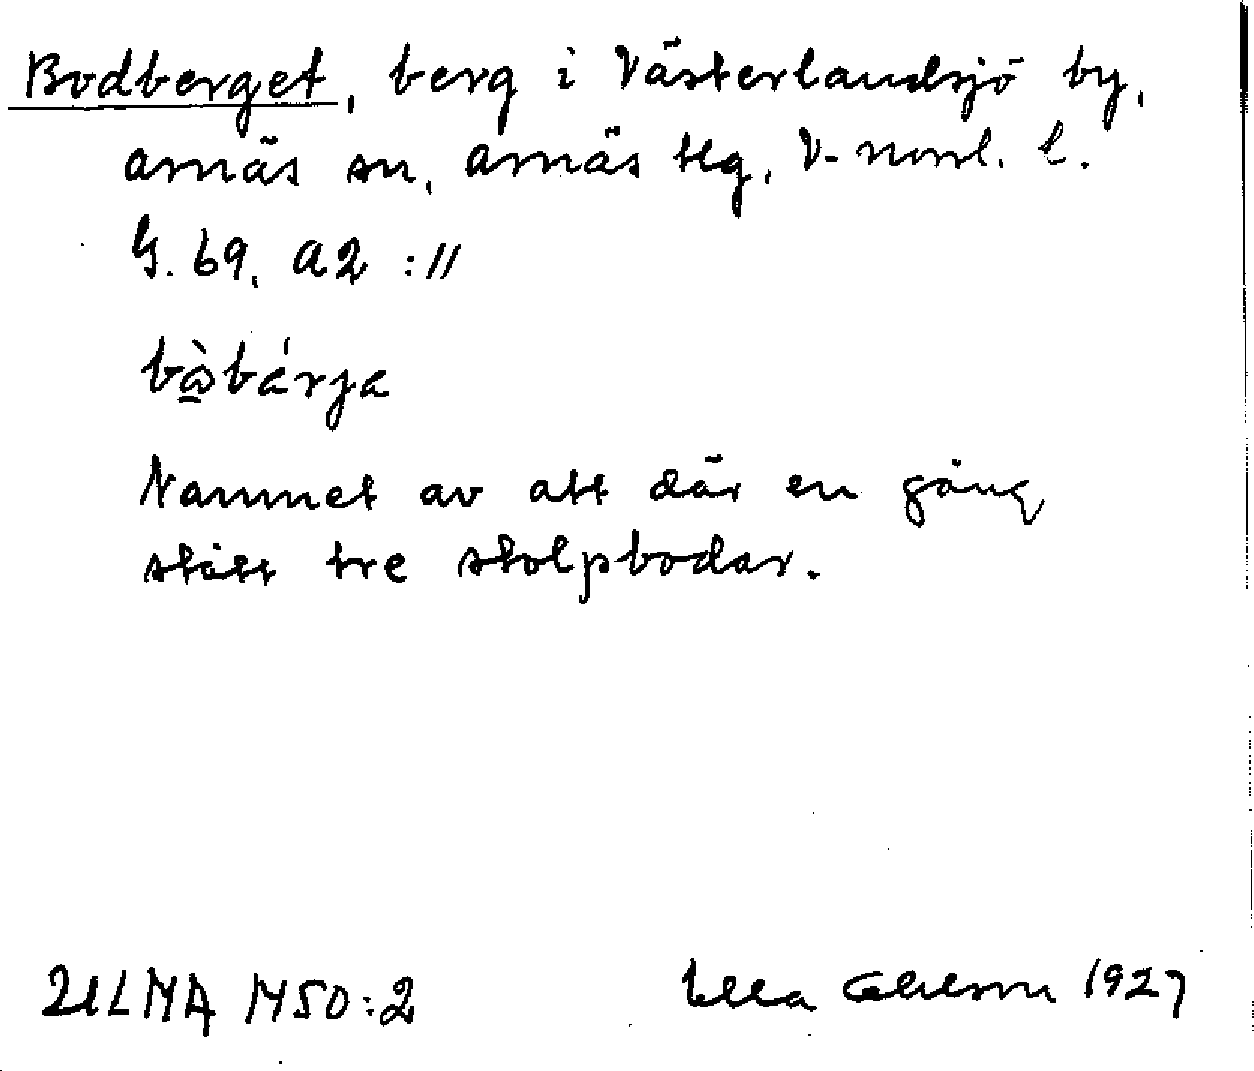 Bodberget, berg i Västerlandsjö by,
Arnäs sn, Arnäs tlg, V-norrl. l.
G. 69, A2 :11
bå̀bä́rja
Namnet av att där en gång
stått tre stolpbodar.
ULMA 1450:2
Ella 1927